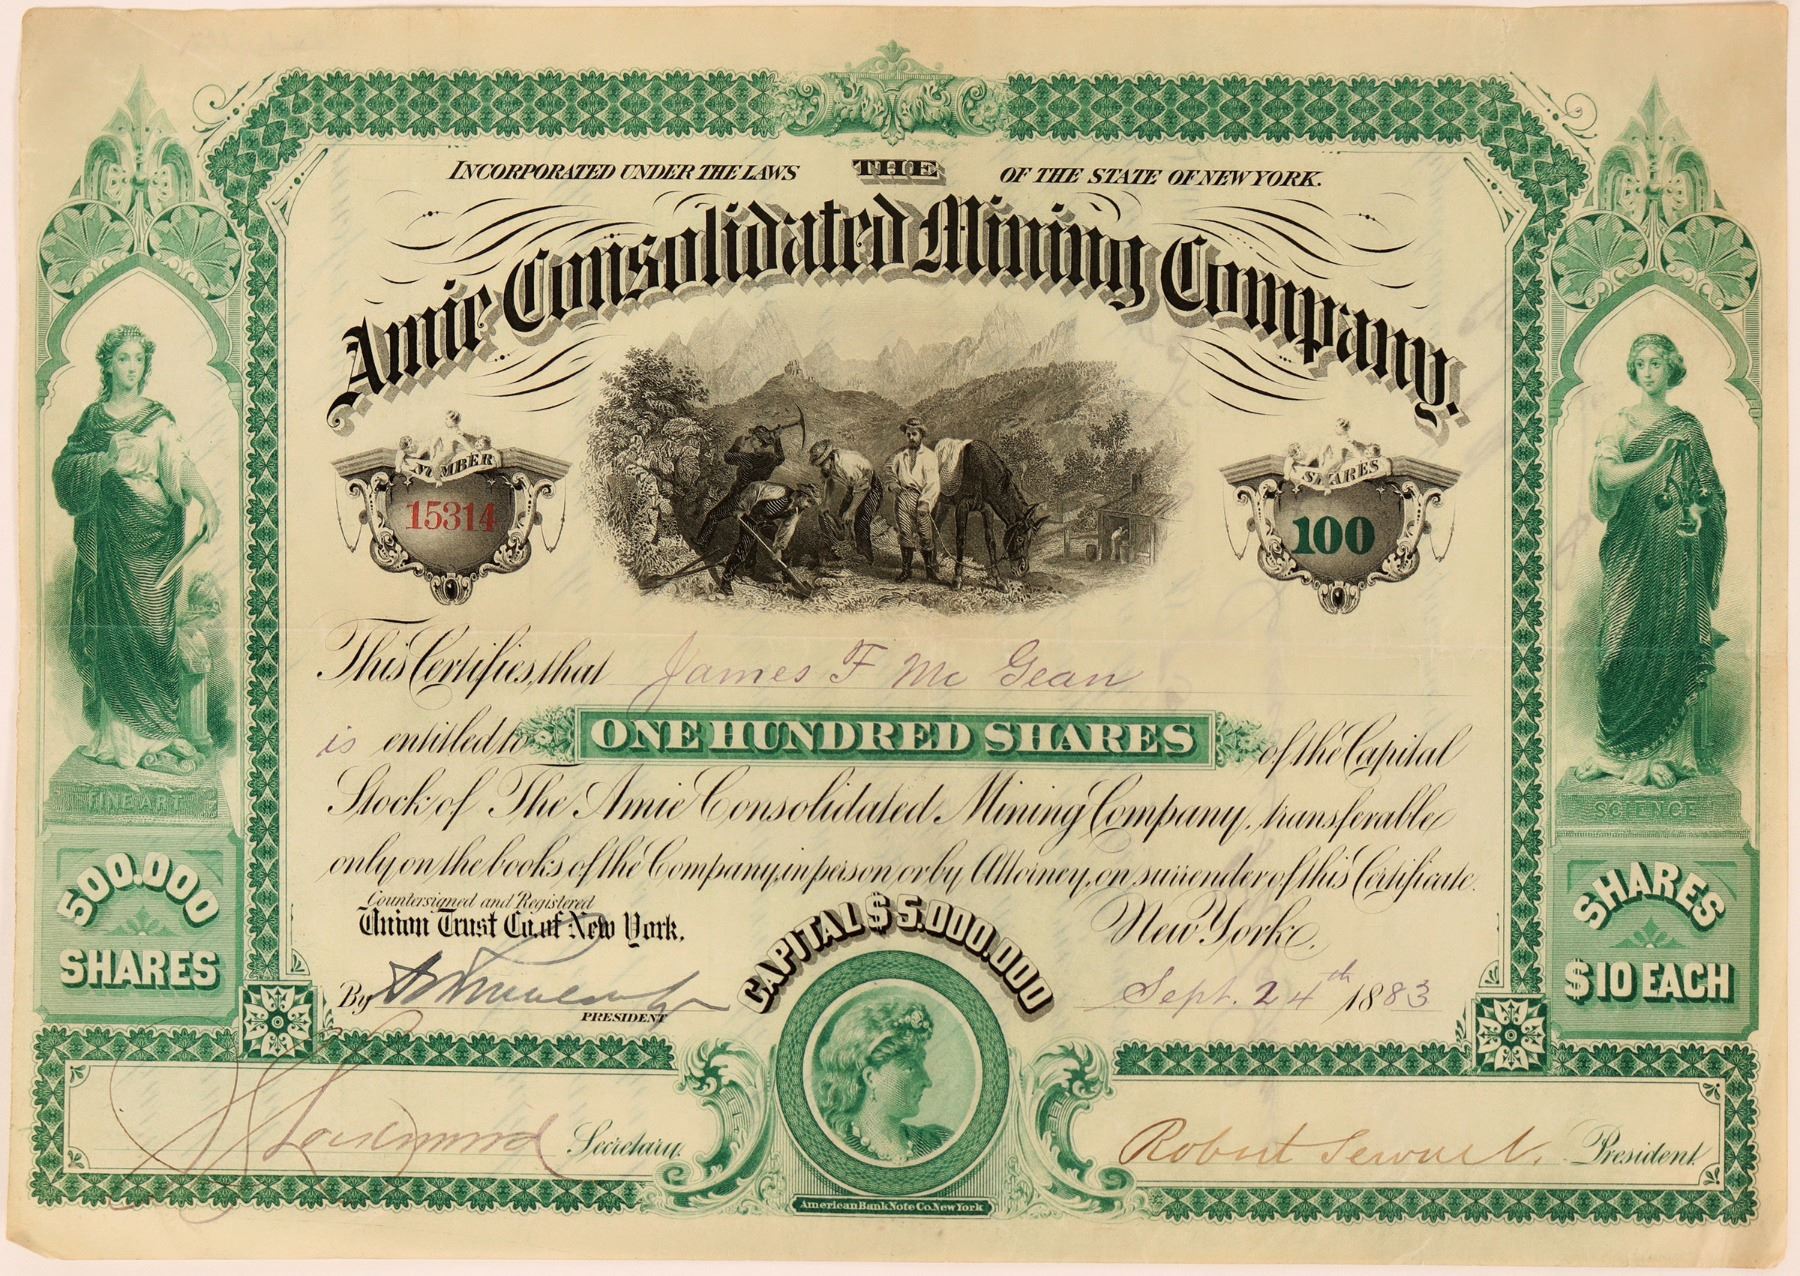 INCORPORATED UNDER THE LAWS THE OF THE STATE OF NEW YORK.
Amie Consolidated Mining Company.
NUMBER
15314
SHARES
100
This Certifies, that James F Mc Gean
is entitled to ONE HUNDRED SHARES of the Capital
Stock of The Amie Consolidated Mining Company, transferable
only on the books of the Company, in person or by Attorney, on surrender of this Certificate.
FINE ART
500.000
SHARES
SCIENCE
SHARES
$10 EACH
Countersigned and Registered
Union Trust Co. of New York.
By
PRESIDENT
CAPITAL $5.000.000
New York,
Sept. 24th 1883
Secretary.
Robert President
American Bank Note Co. New York